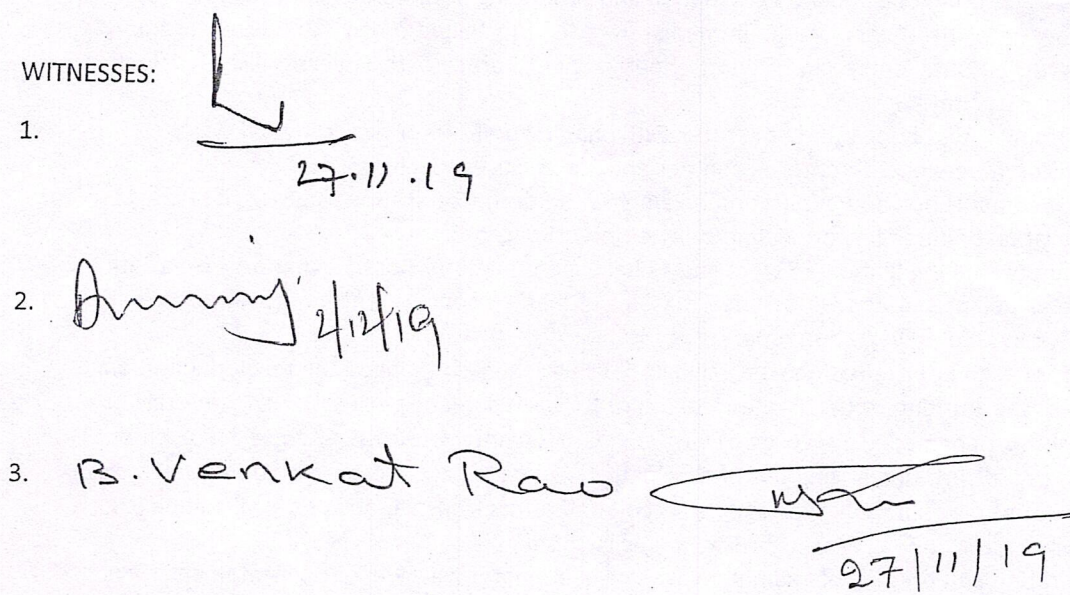 WITNESSES:
1.
27.11.19
2. 2/12/19
3. B. Venkat Rao
27/11/19